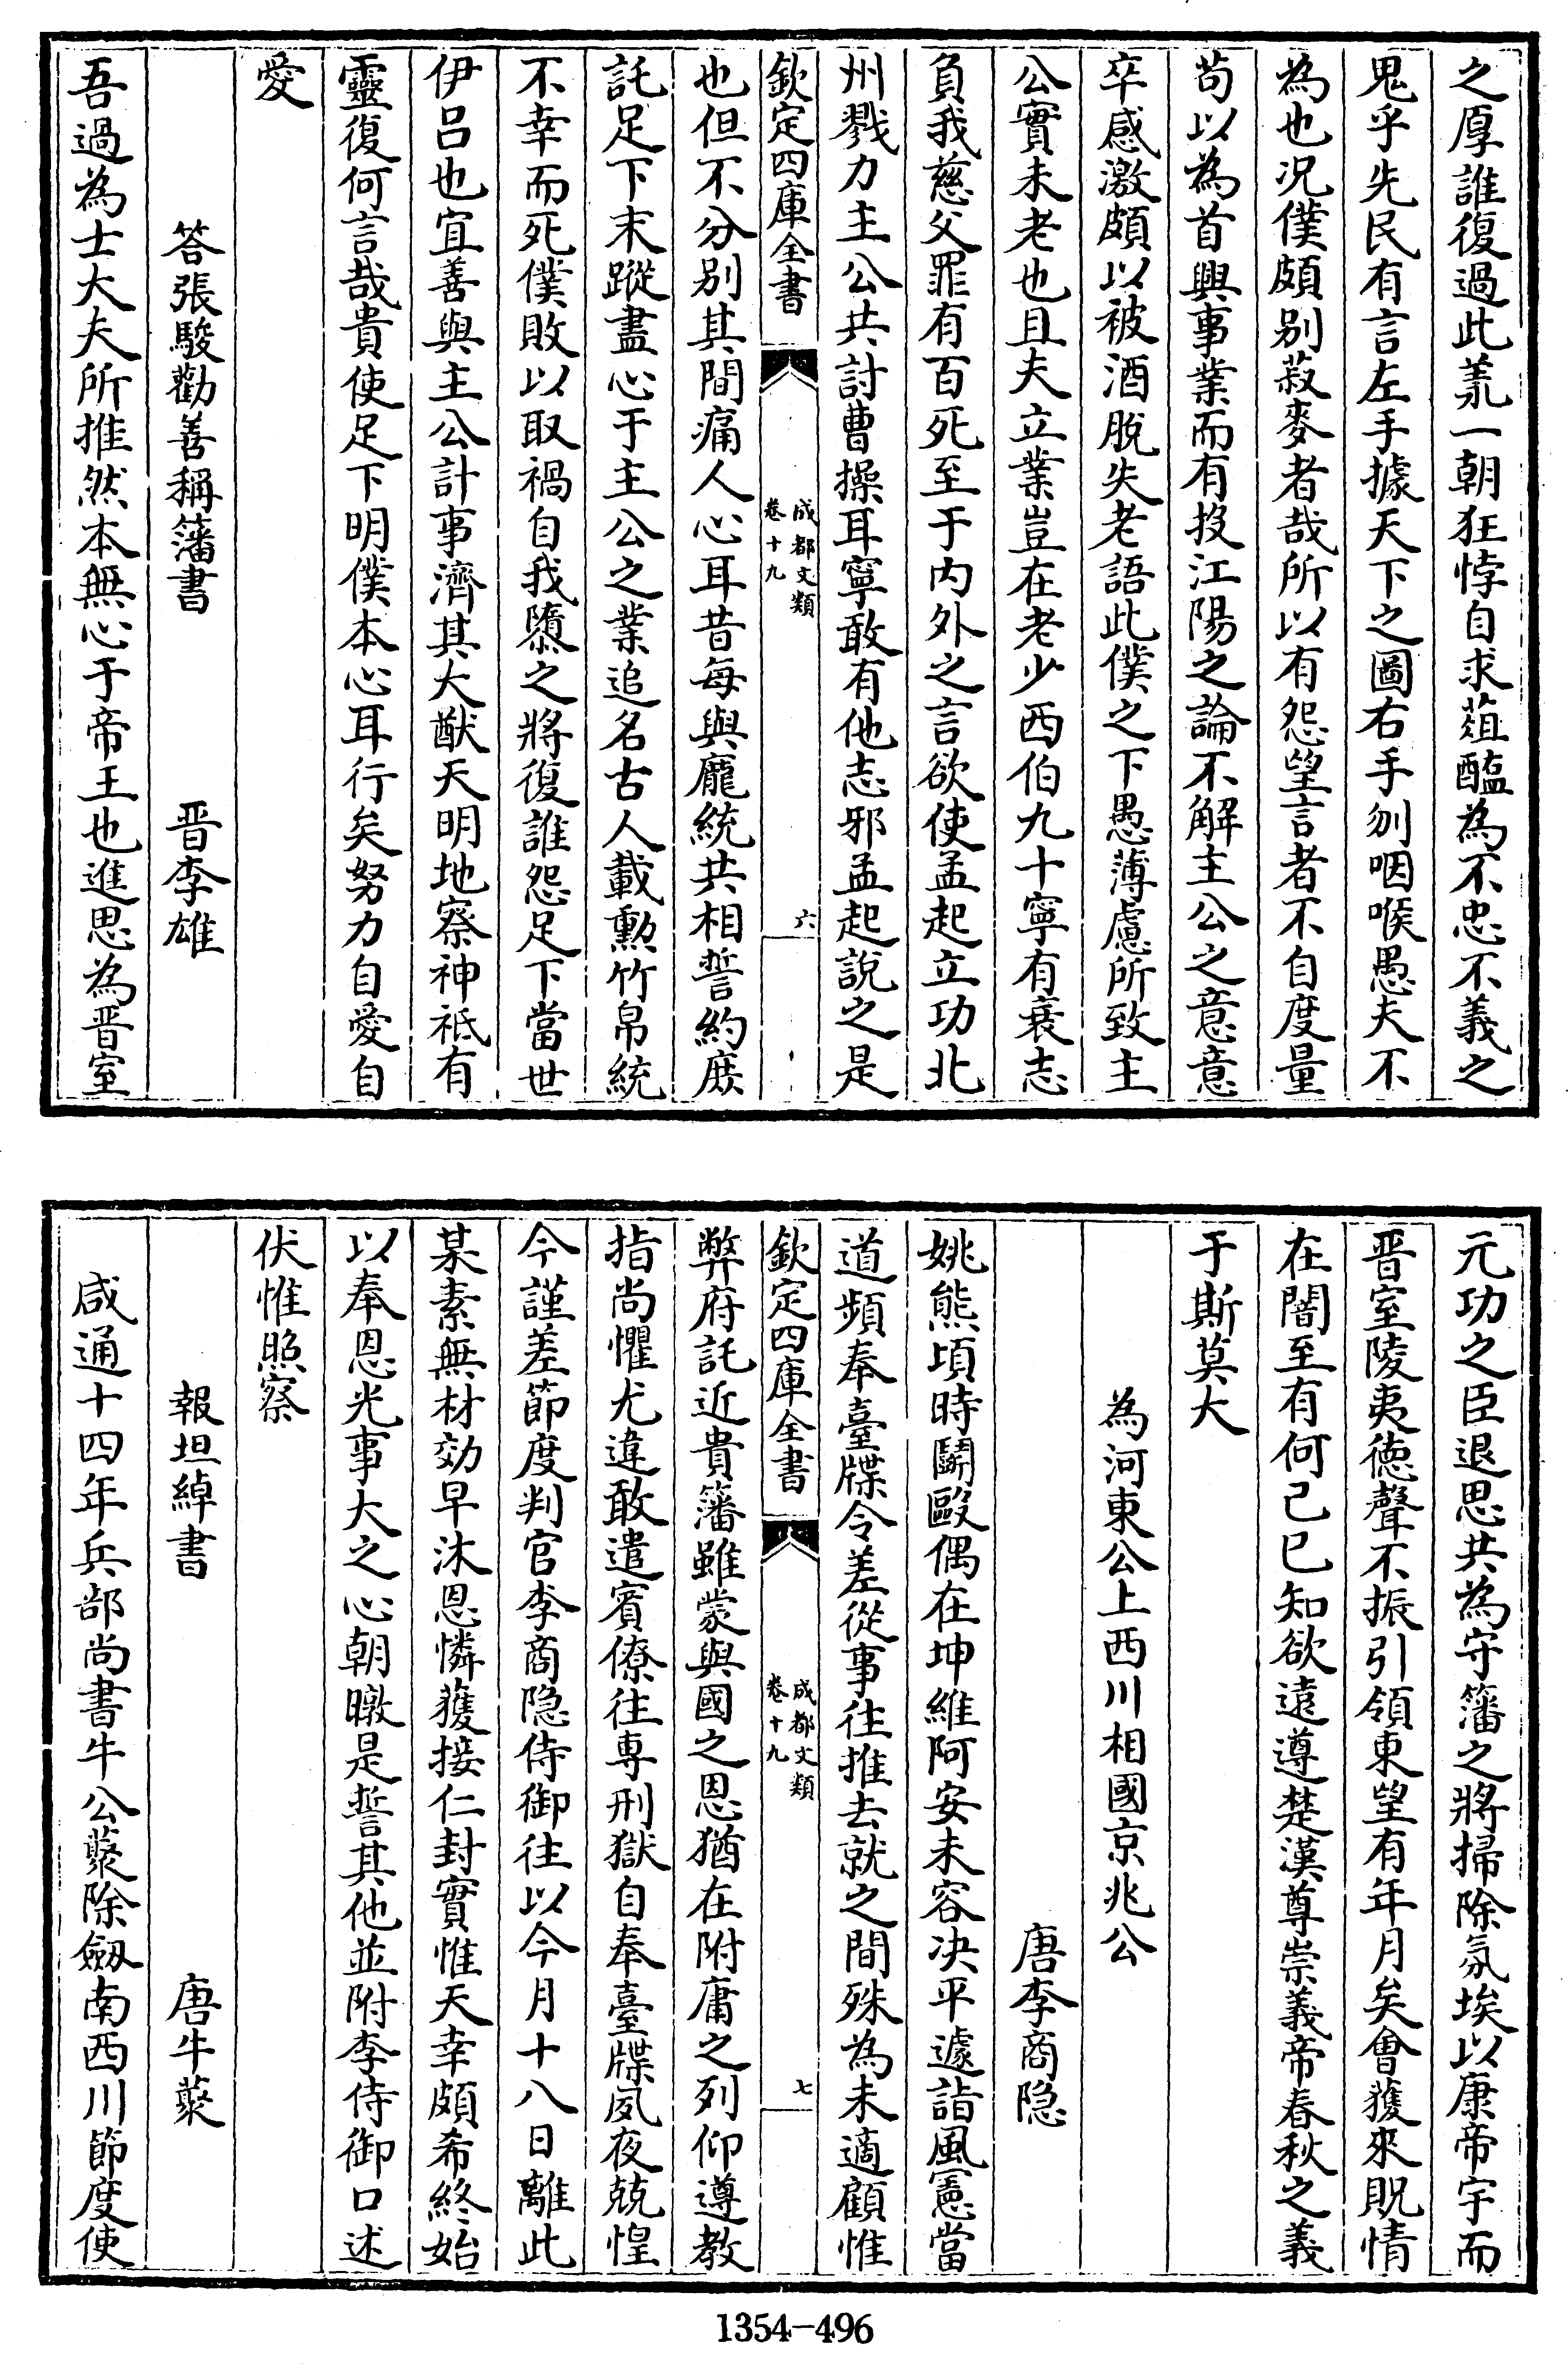 之厚誰復過此羗一朝狂悖自求葅醢為不忠不義之
鬼乎先民有言左手據天下之圖右手刎咽喉愚夫不
為也况僕頗别菽麥者哉所以有怨望言者不自度量
苟以為首興事業而有投江陽之論不解主公之意意
卒感激頗以被酒脫失老語此僕之下愚薄慮所致主
公實未老也且夫立業豈在老少西伯九十寧有衰志
負我慈父罪有百死至于内外之言欲使孟起立功北
州戮力主公共討曹操耳寧敢有他志邪孟起說之是
欽定四庫全書
成都文類
卷十九
六
也但不分别其間痛人心耳昔每與龐統共相誓約庻
託足下末蹤盡心于主公之業追名古人載勲竹帛統
不幸而死僕敗以取禍自我隳之將復誰怨足下當世
伊吕也宜善與主公計事濟其大猷天明地察神祇有
靈復何言哉貴使足下明僕本心耳行矣努力自愛自
愛
答張駿勸善稱藩書 晋李雄
吾過為士大夫所推然本無心于帝王也進思為晋室
元功之臣退思共為守籓之將掃除氛埃以康帝宇而
晋室陵夷徳聲不振引領東望有年月矣㑹獲來貺情
在闇至有何己已知欲遠遵楚漢尊崇義帝春秋之義
于斯莫大
為河東公上西川相國京兆公
唐李商隐
姚熊頃時鬭毆偶在坤維阿安未容决平遽詣風憲當
道頻奉臺牒令差從事往推去就之間殊為未適顧惟
欽定四庫全書
成都文類
卷十九
七
弊府託近貴籓雖蒙與國之恩猶在附庸之列仰遵教
指尚懼尤違敢遣賓僚往専刑獄自奉臺牒夙夜兢惶
今謹差節度判官李商隐侍御往以今月十八日離此
某素無材効早沐恩憐獲接仁封實惟天幸頗希終始
以奉恩光事大之心朝暾是誓其他並附李侍御口述
伏惟照察
報坦綽書 唐牛藂
咸通十四年兵部尚書牛公藂除劔南西川節度使
1354-496